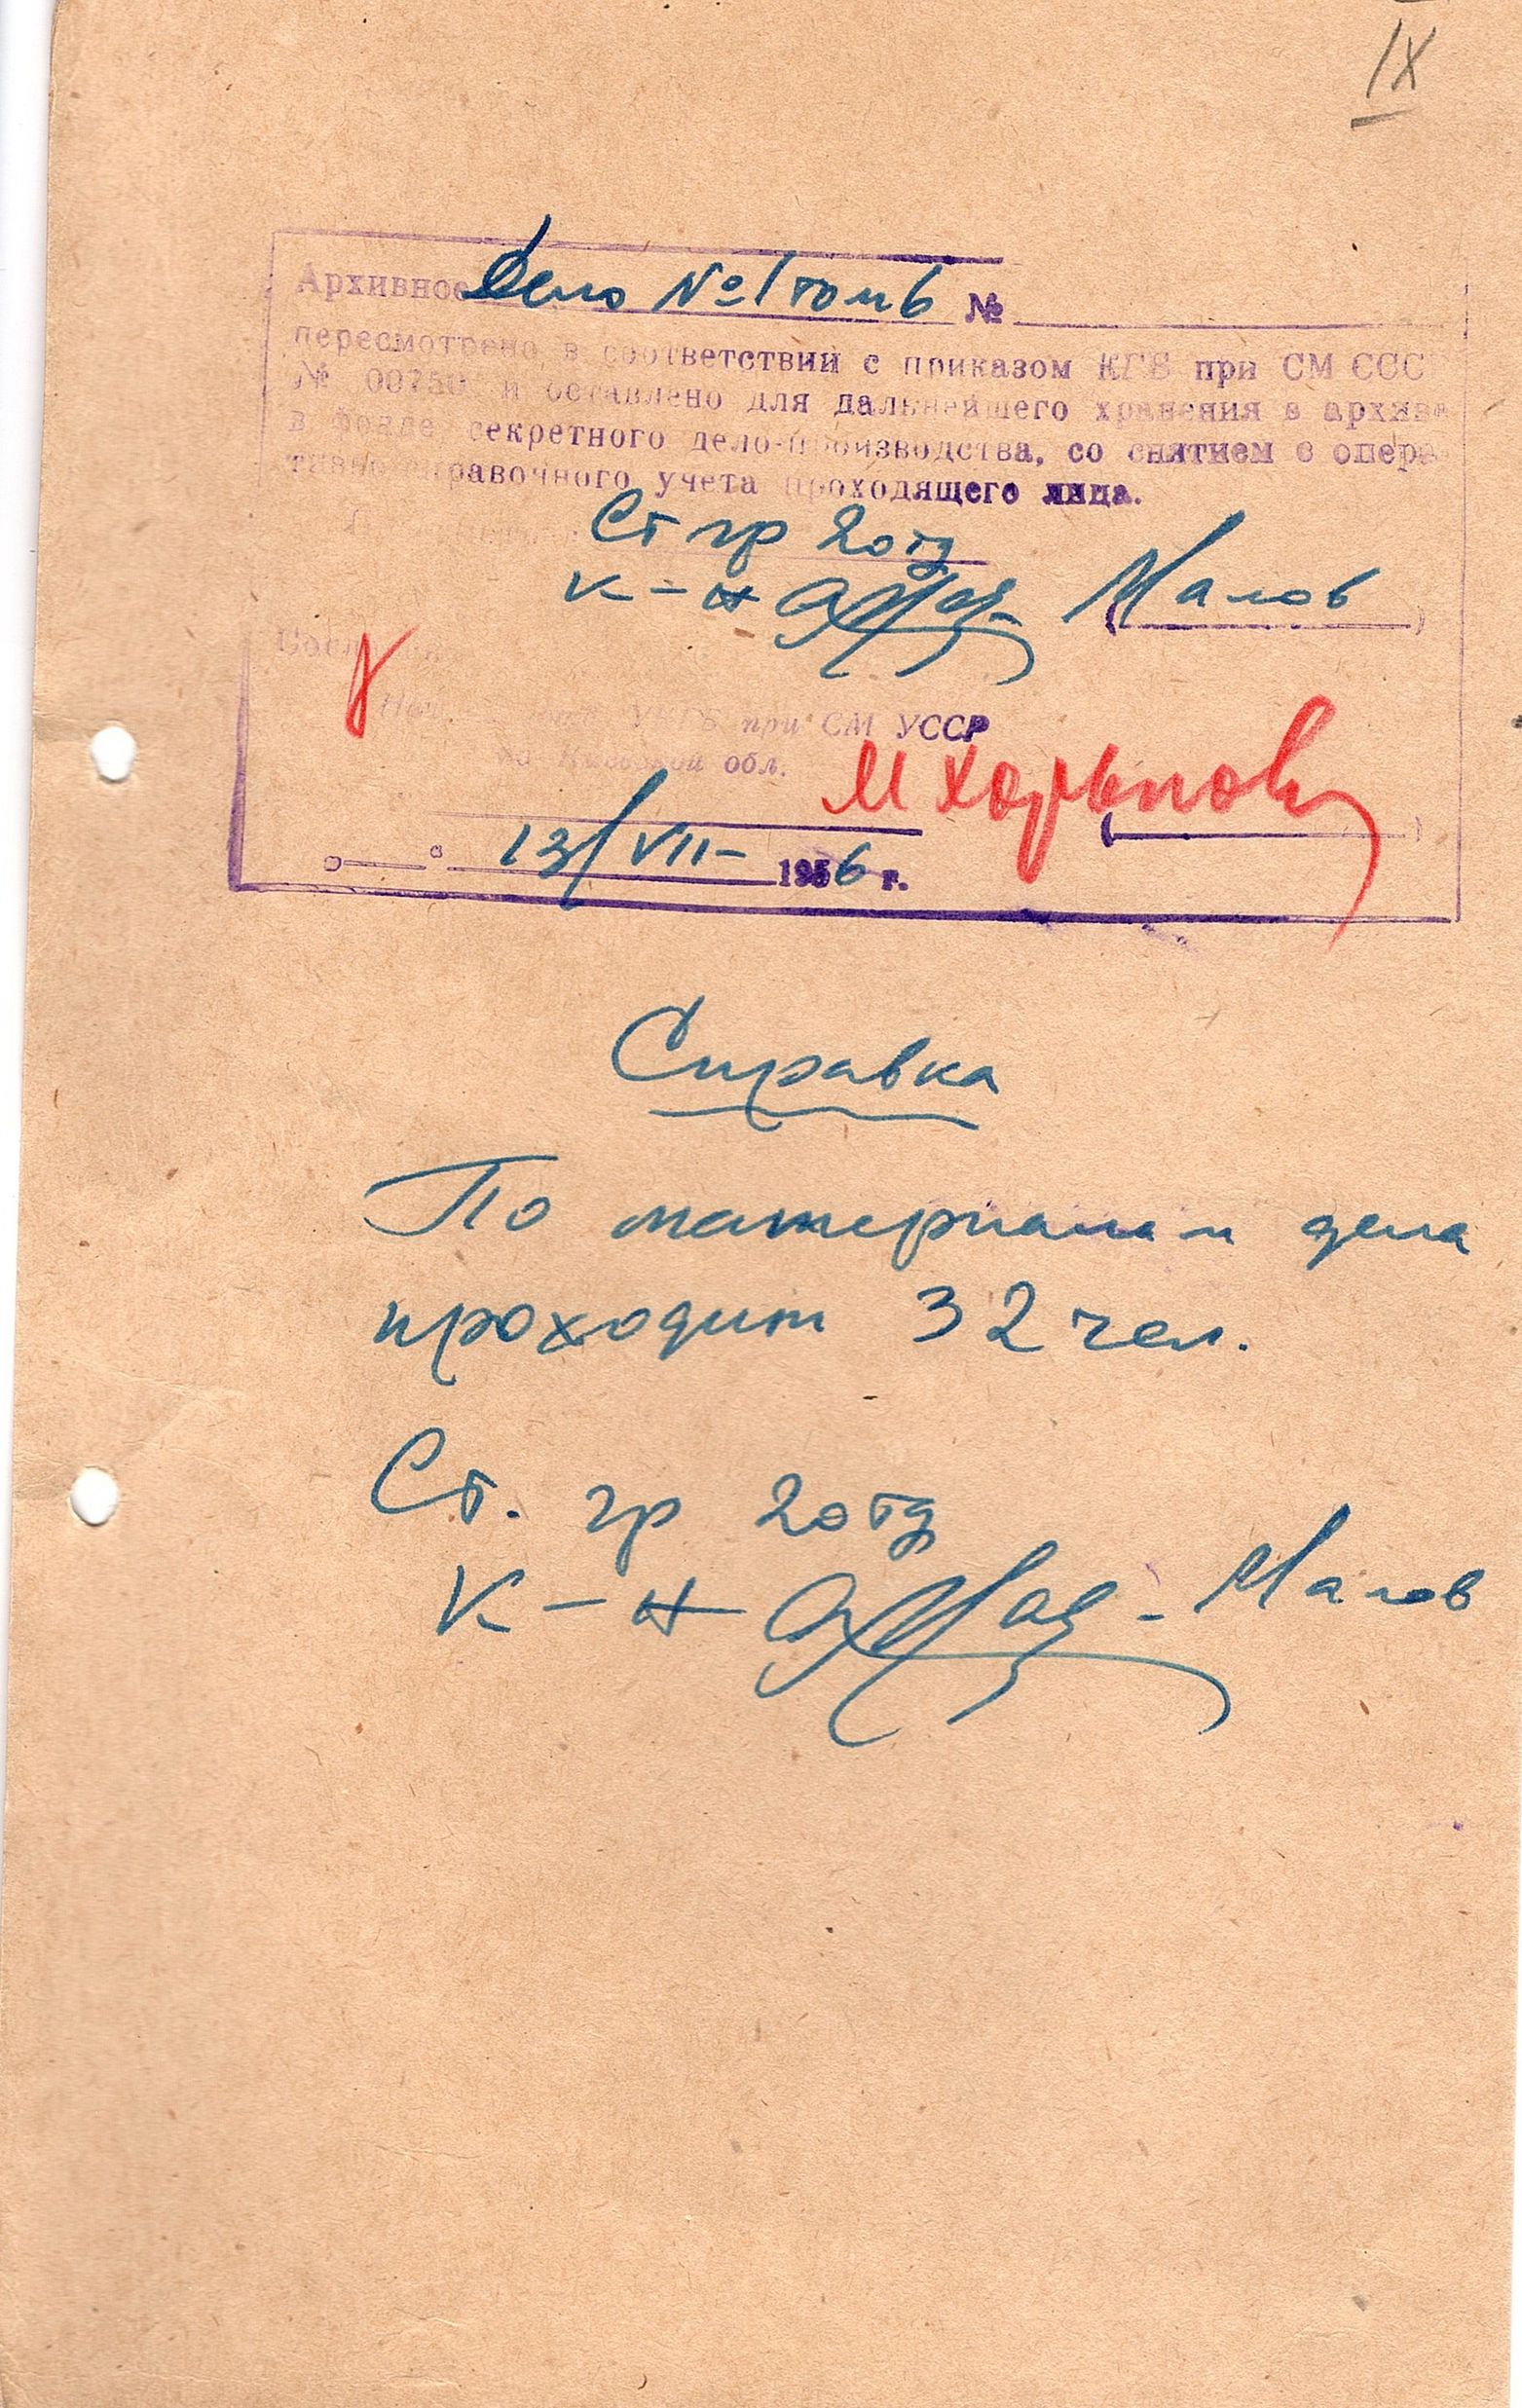 IX
Архивное дело № 1 том 6 №
пересмотрено в соответствии с приказом КГБ при СМ ССС
№ 00750 и оставлено для дальнейшего хранения в архиве
в фонде секретного дело-производства, со снятием с опера
тивно справочного учета проходящего лица.
Ст гр 2 отд
к-н Малов
при СМ УССР
обл.
13/VII- 1956 г.
Справка
По материалам дела
проходит 32 чел.
Ст. гр 2 отд
К-н Малов